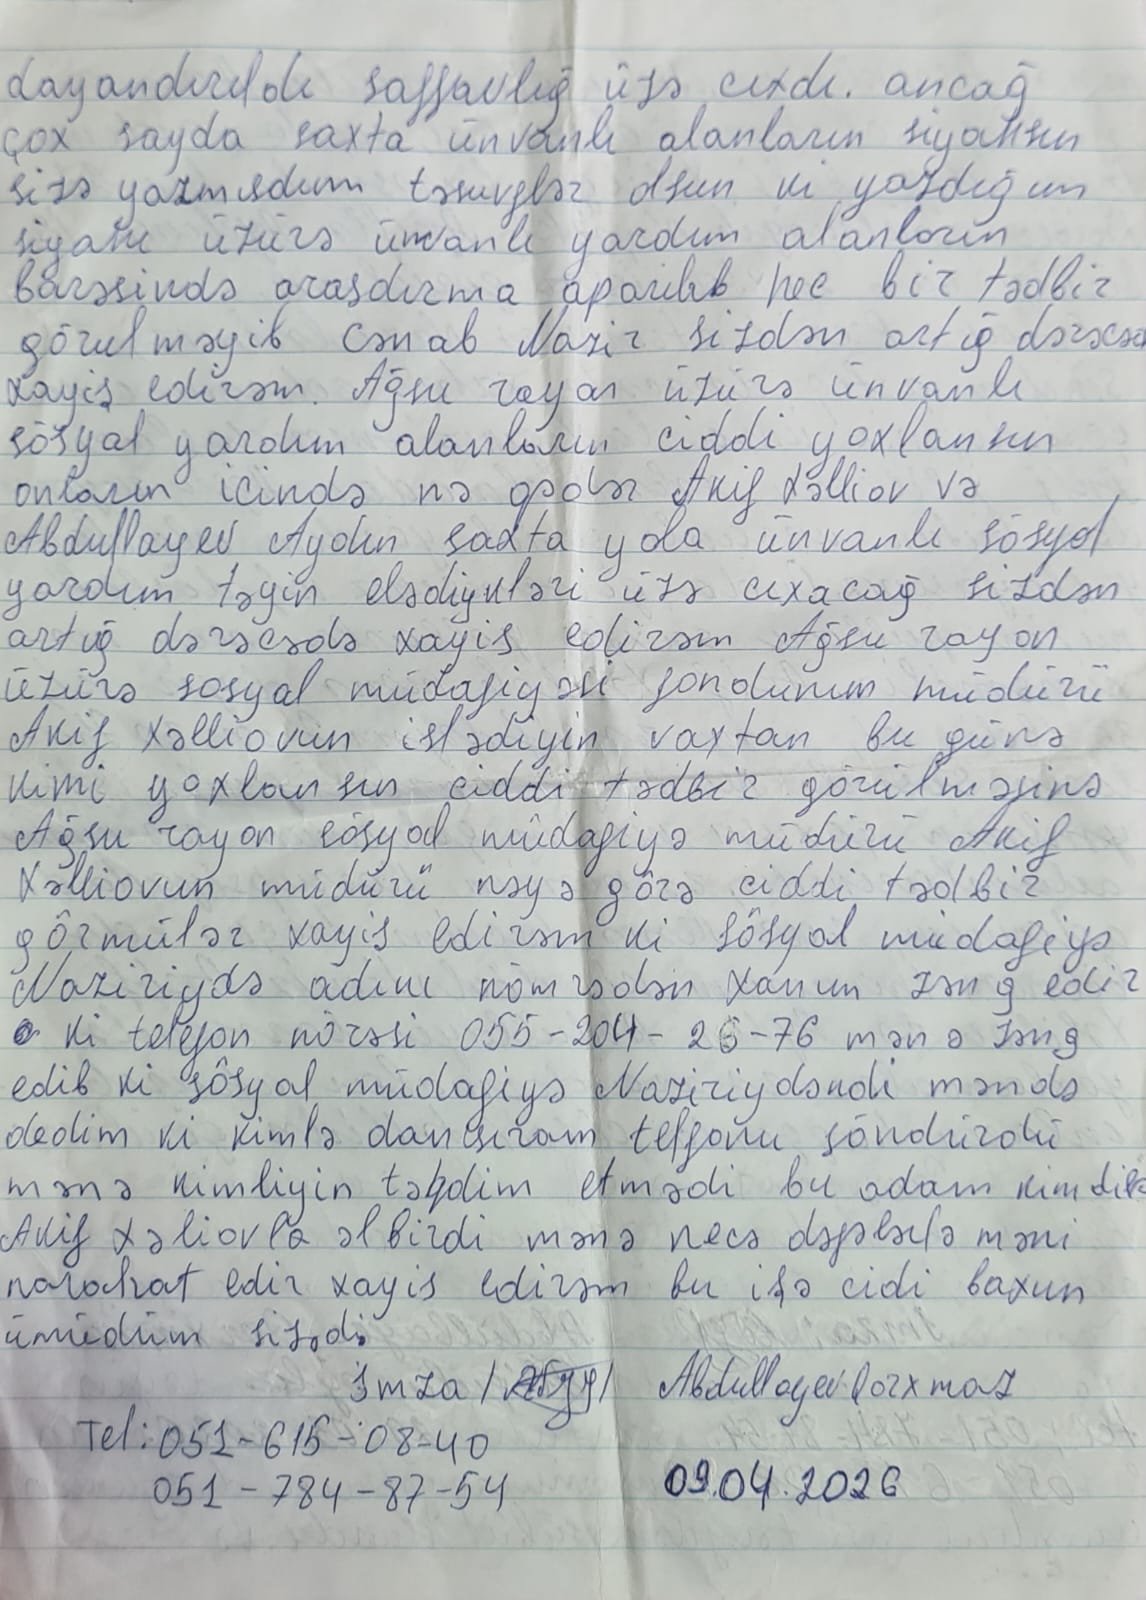 dayandırıldı saffavlığ üzə cıxdı. ancağ
çox sayda saxta ünvanlı alanların siyahsın
sizə yazmısdım təsuvflər olsun ki yazdığım
siyahı üzürə ünvanlı yardım alanların
barəsində arasdırma aparılıb hec bir tədbir
görulməyib Cənab Nazir sizdən artığ dərəcədə
xayiş edirəm. Ağsu rayon üzürə ünvanlı
sösyal yardım alanların ciddi yoxlansın
onların icində nə qədər Akif Xəlliov və
Abdullayev Aydın saxta yola ünvanlı sösyal
yardım təyin elədiykləri üzə cıxacağ sizdən
artığ dərəcədə xayis edirəm Ağsu rayon
üzürə sosyal müdafiyəsi fondunum müdürü
Akif Xəlliovun islədiyin vaxtan bu günə
kimi yoxlansın ciddi tədbir görülməsinə
Ağsu rayon sösyal müdafiyə müdürü Akif
Xəlliovun müdürü nəyə görə ciddi tədbir
görmülər xayis edirəm ki sösyal müdafiyə
Naziriydə adını nömrədən xanım zəng edir
ki telefon nörəsi 055-204-26-76 mənə zəng
edib ki sösyal müdafiyə Naziriydəndi məndə
dedim ki kimlə danısıram telfonu söndürdü
mənə kimliyin təqdim etmədi bu adam kimdir
Akif Xəliovla əlbirdi mənə necə dəfələrlə məni
narahat edir xayis edirəm bu işə cidi baxın
ümüdüm sizədi
İmza / / Abdullayev Qorxmaz
Tel: 051-615-08-40
051-784-87-54 09.04.2026